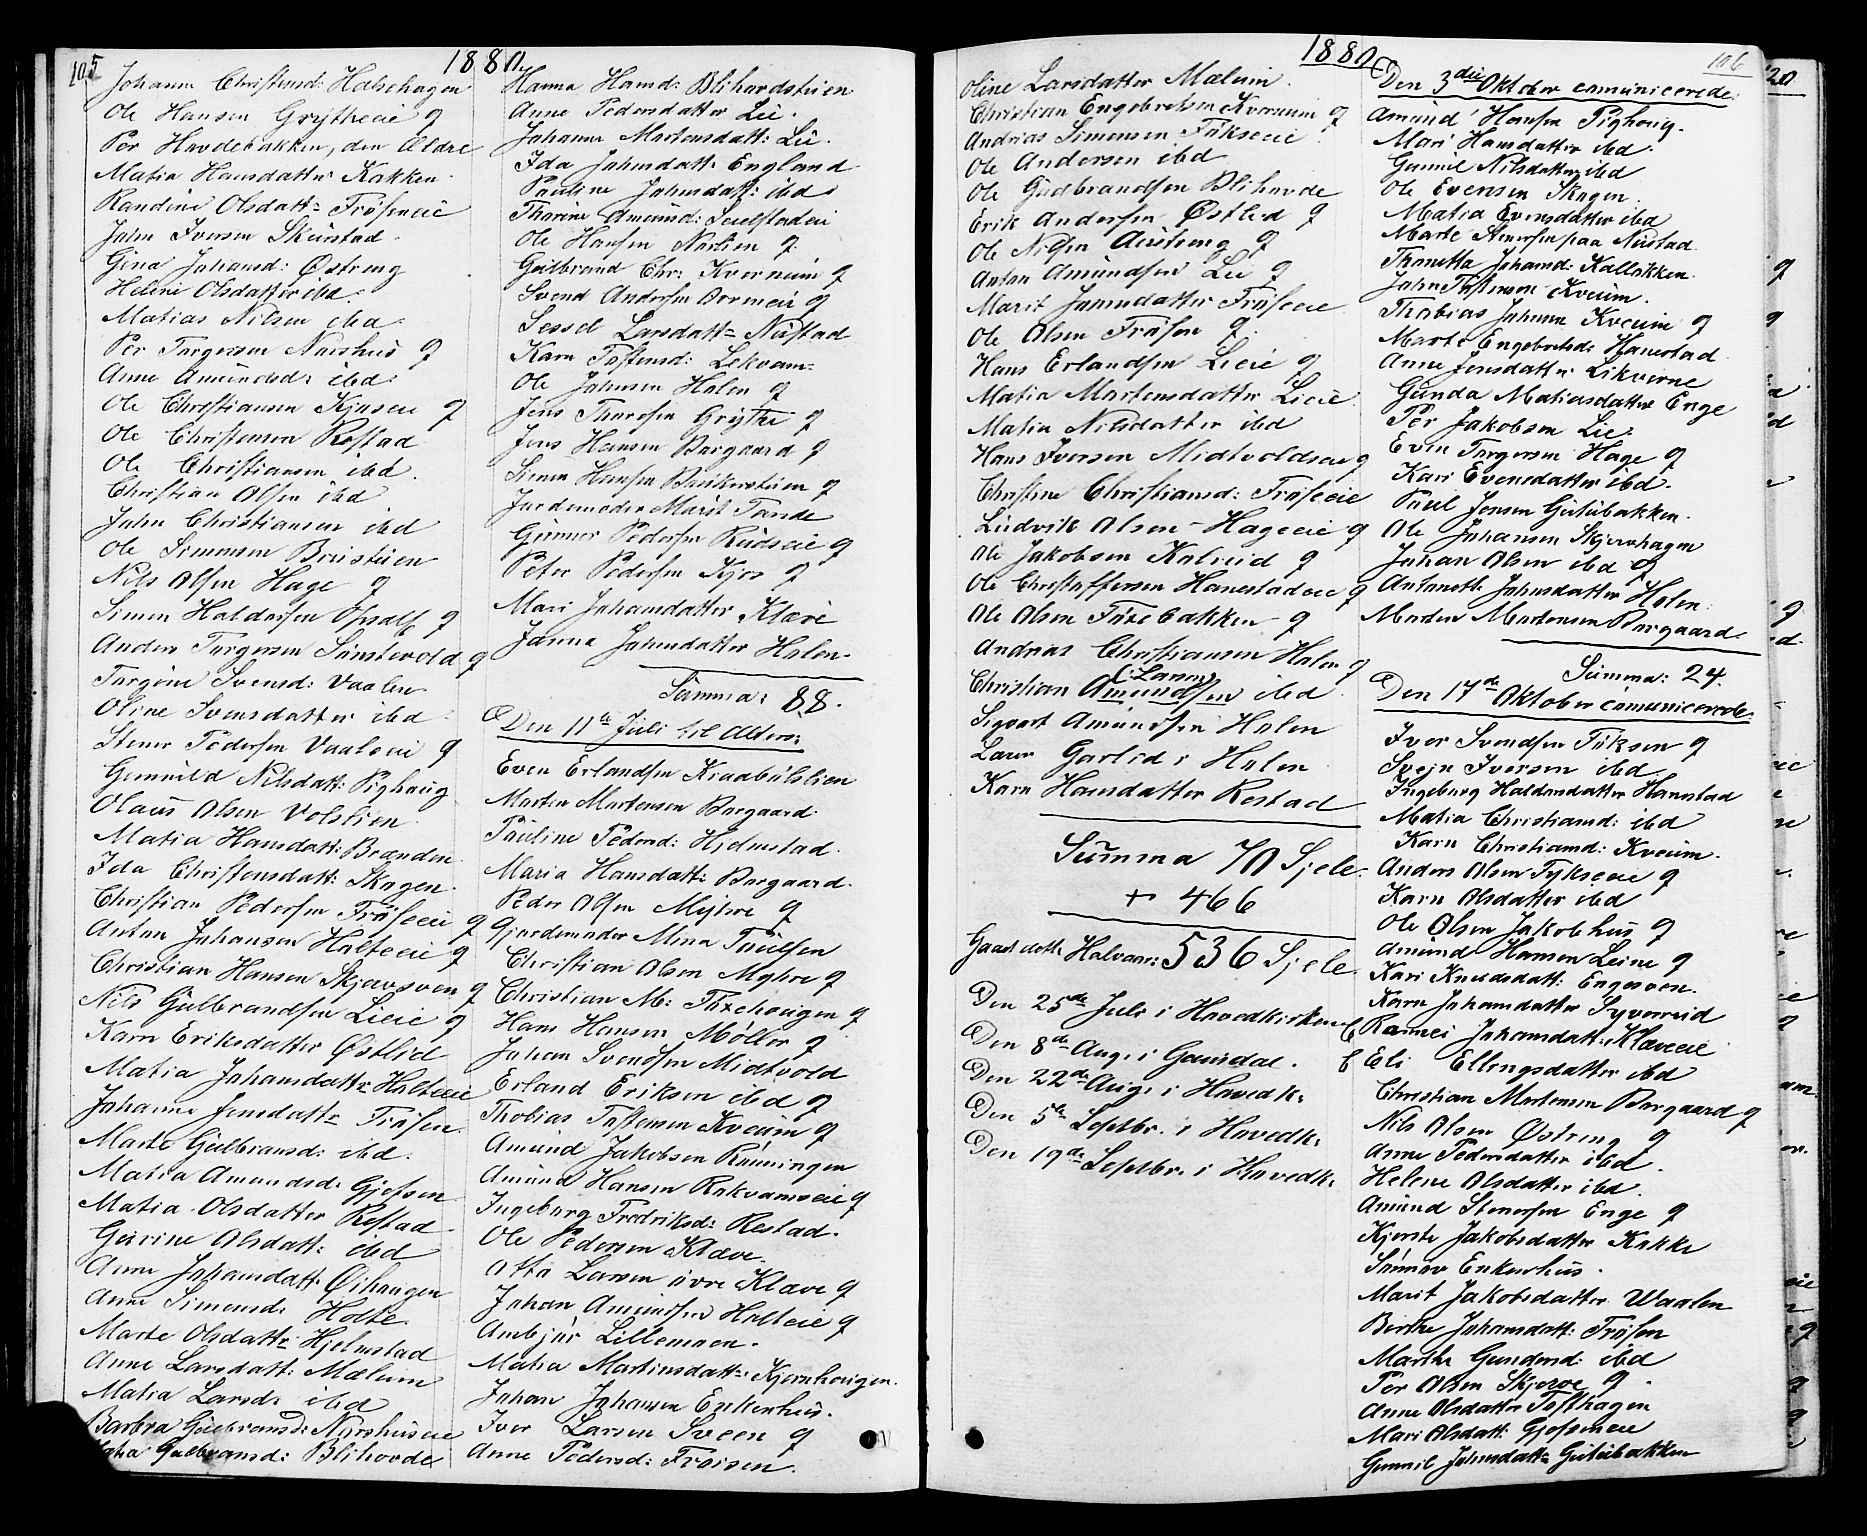 105
1880.
Johanne Christensd: Halsehagen
Ole Hansen Grytheeie q
Per Hovdebakken, den Ældre
Matia Hansdatter Kakken.
Randine Olsdatt= Fröseeie
John Iversen Skurstad.
Gina Johansd: Østreng
Helene Olsdatter ibd.
Matias Nilsen ibd.
Per Torgersen Norshus q
Anne Amundsd: ibd.
Ole Christiansen Kjoseie q
Ole Christensen Rostad
Ole Christiansen ibd.
Christian Olsen ibd
John Christiansen ibd
Ole Simensen Brustuen
Nils Olsen Hage q
Simen Haldorsen Opsal q
Anders Torgersen Sønstevold q
Torgine Svensd: Vaalen
Oline Svensdatter ibd.
Stener Pedersen Vaaleeie q
Gunnild Nilsdatt: Pighoug
Olaus Olsen Volslien
Matia Hansdatt: Brænden
Ida Christensdatt: Skagen.
Christian Pedersen Fröseeie q
Anton Johansen Holteeie q
Christian Hansen Skjævsven q
Nils Gulbrandsen Lieie q
Karn Eriksdatter Østlid
Matia Johansdatt= Holteeie
Johanne Jensdatt= Fröisen
Marte Gulbransd: ibd.
Matia Amundsd: Gjefsen
Matia Olsdatter Rostad
Gurine Olsdatt: ibd
Anne Johansdatt: Øihaugen
Anne Simensd: Holte
Marte Olsdatt= Hjelmstad
Anne Larsdatt: Mælum
Matia Larsd: ibd
Barbra Gulbransd: Norshuseie
Gulbransd: Blihovde
Hanna Hansd: Blihovdstuen
Anne Pedersdatter Lie.
Johanne Martensdatt: Lie.
Ida Johnsdatt: England
Pauline Johnsdatt: ibd.
Thorine Amunsd: Sielstadeie
Ole Hansen Norlien q
Gulbrand Chr: Kvernum q
Svend Andersen Bormeie q
Sessel Larsdatt= Nustad
Karn Tostensd: Lekvam=
Ole Johnsen Holen q
Jens Thoresen Grythe q
Jens Hansen Borgaard q
Simen Hansen Baukerstuen q
Jordemoder Marit Tande
Gunner Pedersen Rudseie q
Peter Pedersen Kjos q
Mari Johansdatter Klæve
Janna Johnsdatter Holen.
Summa: 88.
Den 11te Juli til Alters:
Even Erlandsen Kraabölslien
Morten Mortensen Borgaard.
Pauline Pedersd: Hjelmstad.
Maria Hansdatt: Borgaard.
Peder Olsen Myhre q
Gjordemoder Mina Paulsen
Christian Olsen Myhre q
Christian M: Toxehougen q
Hans Hansen Møller q
Johan Svendsen Midtvold
Erland Eriksen ibd q
Thobias Tostensen Kveum q
Amund Jakobsen Rönningen
Amund Hansen Rakvamseie q
Ingeborg Fredriksd: Rostad.
Ole Pedersen Klæve.
Otto Larsen övre Klæve q
Johan Amundsen Holteeie q
Ambjör Lillemoen.
Matia Martinsdatt: Kjernhougen.
Johan Johansen Enkenhus.
Iver Larsen Sveen q
Anne Pedersd: Froisen.
1880
106
Oline Larsdatter Mælum.
Christian Engebretsen Kvernum q
Andrias Simensen Fikseeie
Ole Andersen ibd
Ole Gudbrandsen Blihovde
Erik Andersen Østlid q
Ole Nilsen Austreng q
Anton Amundsen Lie q
Marit Johnsdatter Fröseeie
Ole Olsen Fröisen q.
Hans Erlandsen Lieie q
Matia Martensdatter Lieie
Matia Nilsdatter ibd
Hans Iversen Midtvoldseie q
Christine Christiansd: Fröseeie
Ludvik Olsen Hageeie q
Ole Jakobsen Kalvlid q
Ole Christoffersen Hanestadeie q
Ole Olsen Toxebakken q
Andreas Christiansen Holen q
(: Larsen
Christian Amundsen ibd.
Sigvart Amundsen Holen
Laur Garlid i Holen
Karn Hansdatter Rostad
Summa 70 Sjele.
+ 466
Gaaet dette Halvaar: 536 Sjele
Den 25de Juli i Hovedkirken
Den 8de Aug: i Gausdal.
Den 22de Aug: i Hovedk:
Den 5te Septbr. i Hovedk:
Den 19de Septbr. i Hovedk:
Den 3die Oktober comunicerede:
Amund Hansen Pighoug.
Mari Hansdatter ibd.
Gunnil Nilsdatter ibd
Ole Evensen Skagen.
Matia Evensdatter ibd
Marte Stenersen paa Nustad
Thonetta Johansd: Kalbakken.
John Tostensen Kveum.
Thobias Johnsen Kveum q
Marte Engebretsd: Hanestad
Anne Jensdatter Likverne
Gunda Matiasdatter Enge
Per Jakobsen Lie.
Even Torgersen Hage q
Kari Evensdatter ibd.
Paul Jonsen Gutubakken.
Ole Johansen Skjervhagen
Johan Olsen ibd q
Antonette Johnsdatter Holen.
Morten Mortensen Borgaard.
Summa: 24.
Den 17de Oktober comunicerede:
Iver Svendsen Fiksen q
Svejn Iversen ibd
Ingeborg Haldorsdatter Hanestad
Matia Christiansd: ibd
Karn Christiansd: Kveum.
Anders Olsen Fykseeie q
Karn Olsdatter ibd
Ole Olsen Jakobhus q
Amund Hansen Leine q
Kari Knudsdatt: Engesven.
Karn Johansdatter Syverrud
Rannei Johansdatt: Klæveeie
Eli Ellingsdatter ibd
Christian Mortensen Borgaard q
Nils Olsen Østreng q
Anne Pedersdatter ibd.
Helene Olsdatter ibd.
Amund Stenersen Enge q
Kjerste Jakobsdatter Kakke
Sønnøv Enkerhus.
Marit Jakobsdatter Waalen
Berthe Johansdatt: Fröisen
Marthe Gundersd: ibd
Per Olsen Skjerve q.
Anne Olsdatter Tofthagen
Mari Olsdatt: Gjefseneie
Gunnil Johnsdatt= Gutubakken